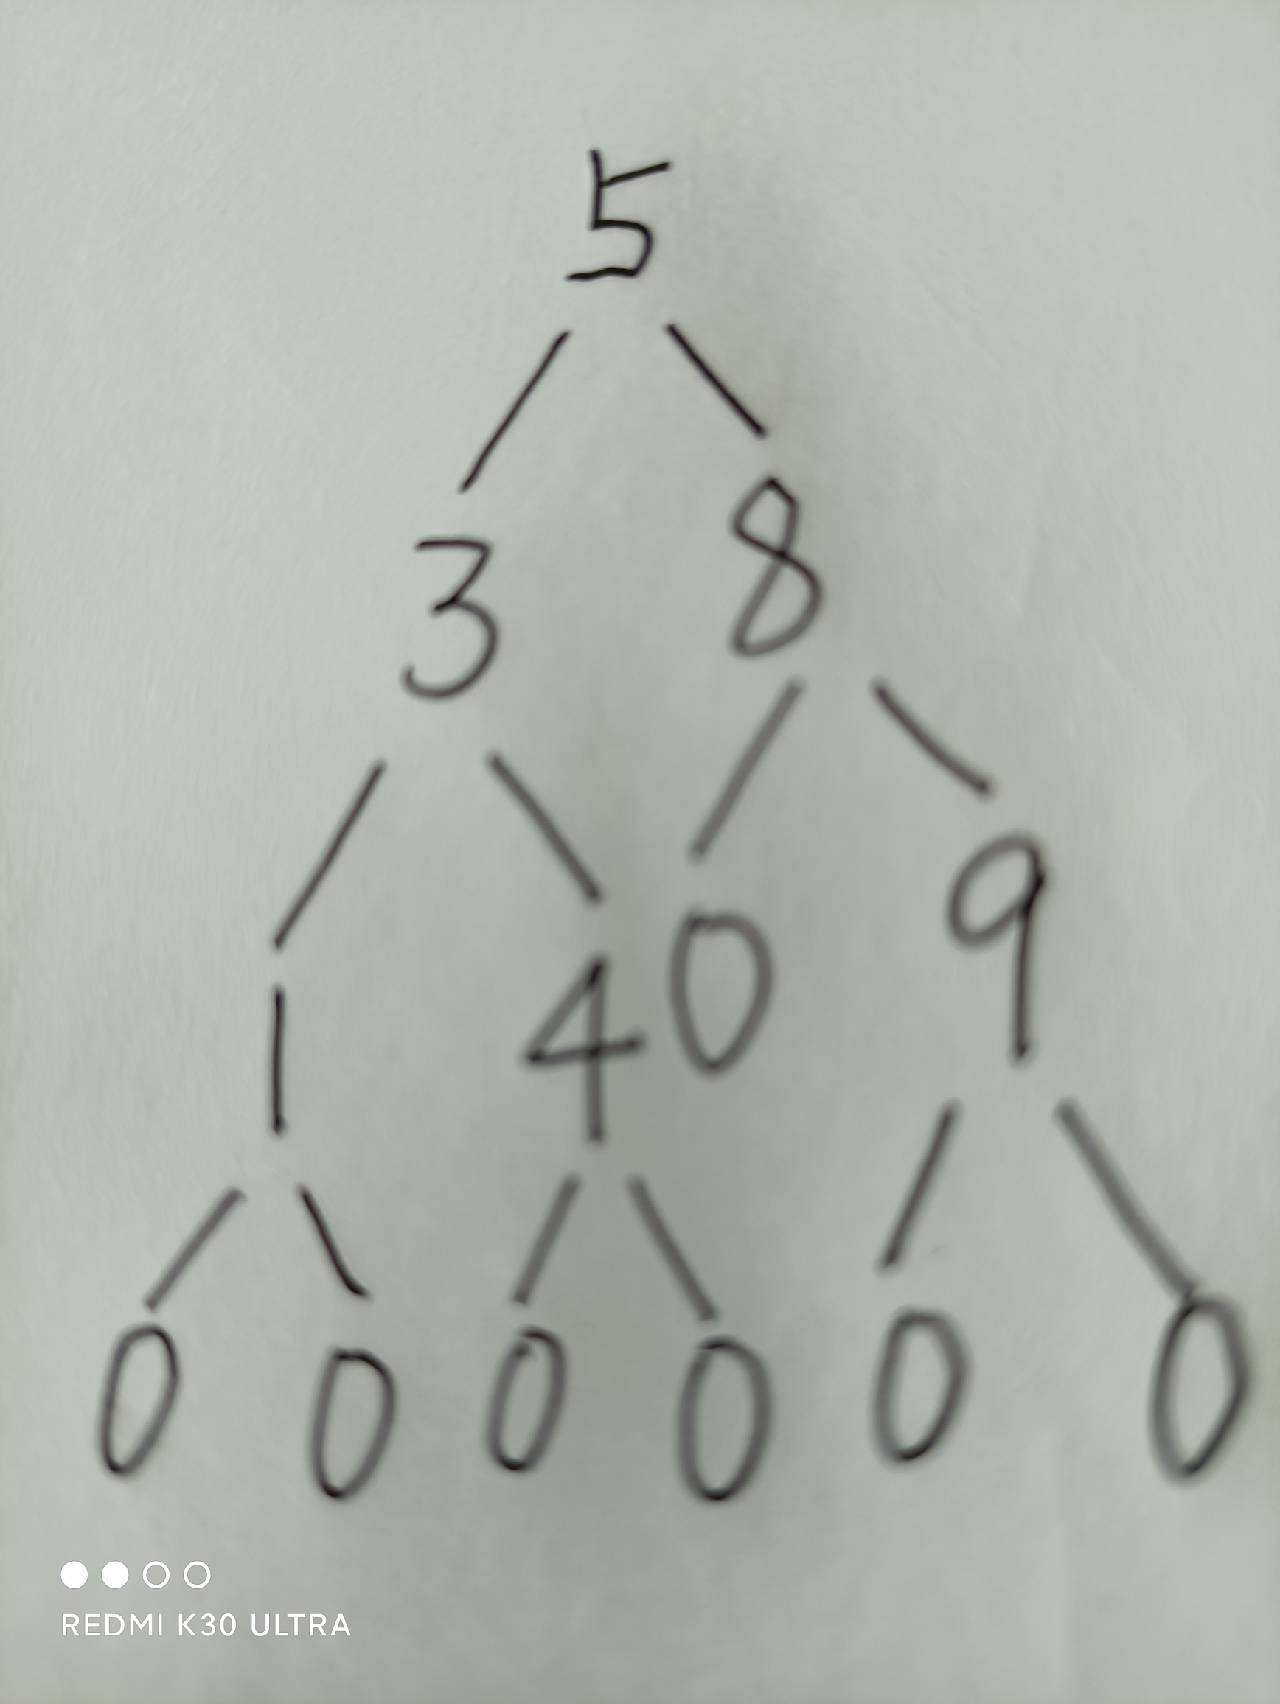 5
3 8
1 4 0 9
0 0 0 0 0 0
REDMI K30 ULTRA